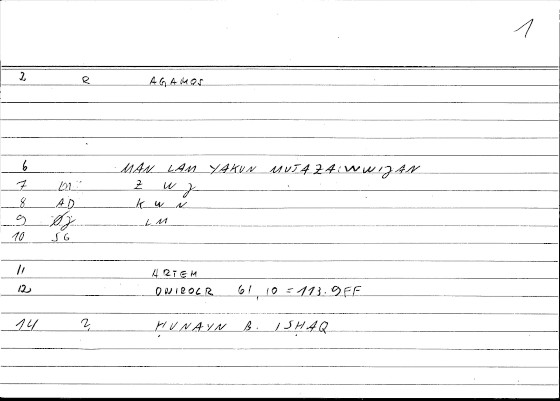 1
2 R AGAMOS
6 MAN LAM YAKUN MUTAZAIWWIJAN
7 Z W J
8 AD K W N
9 LM
10 SG
11 ARTEM
12 ONIROCR 61, 10 = 113.9FF
14 2, ḤUNAYN B. ISḤAQ